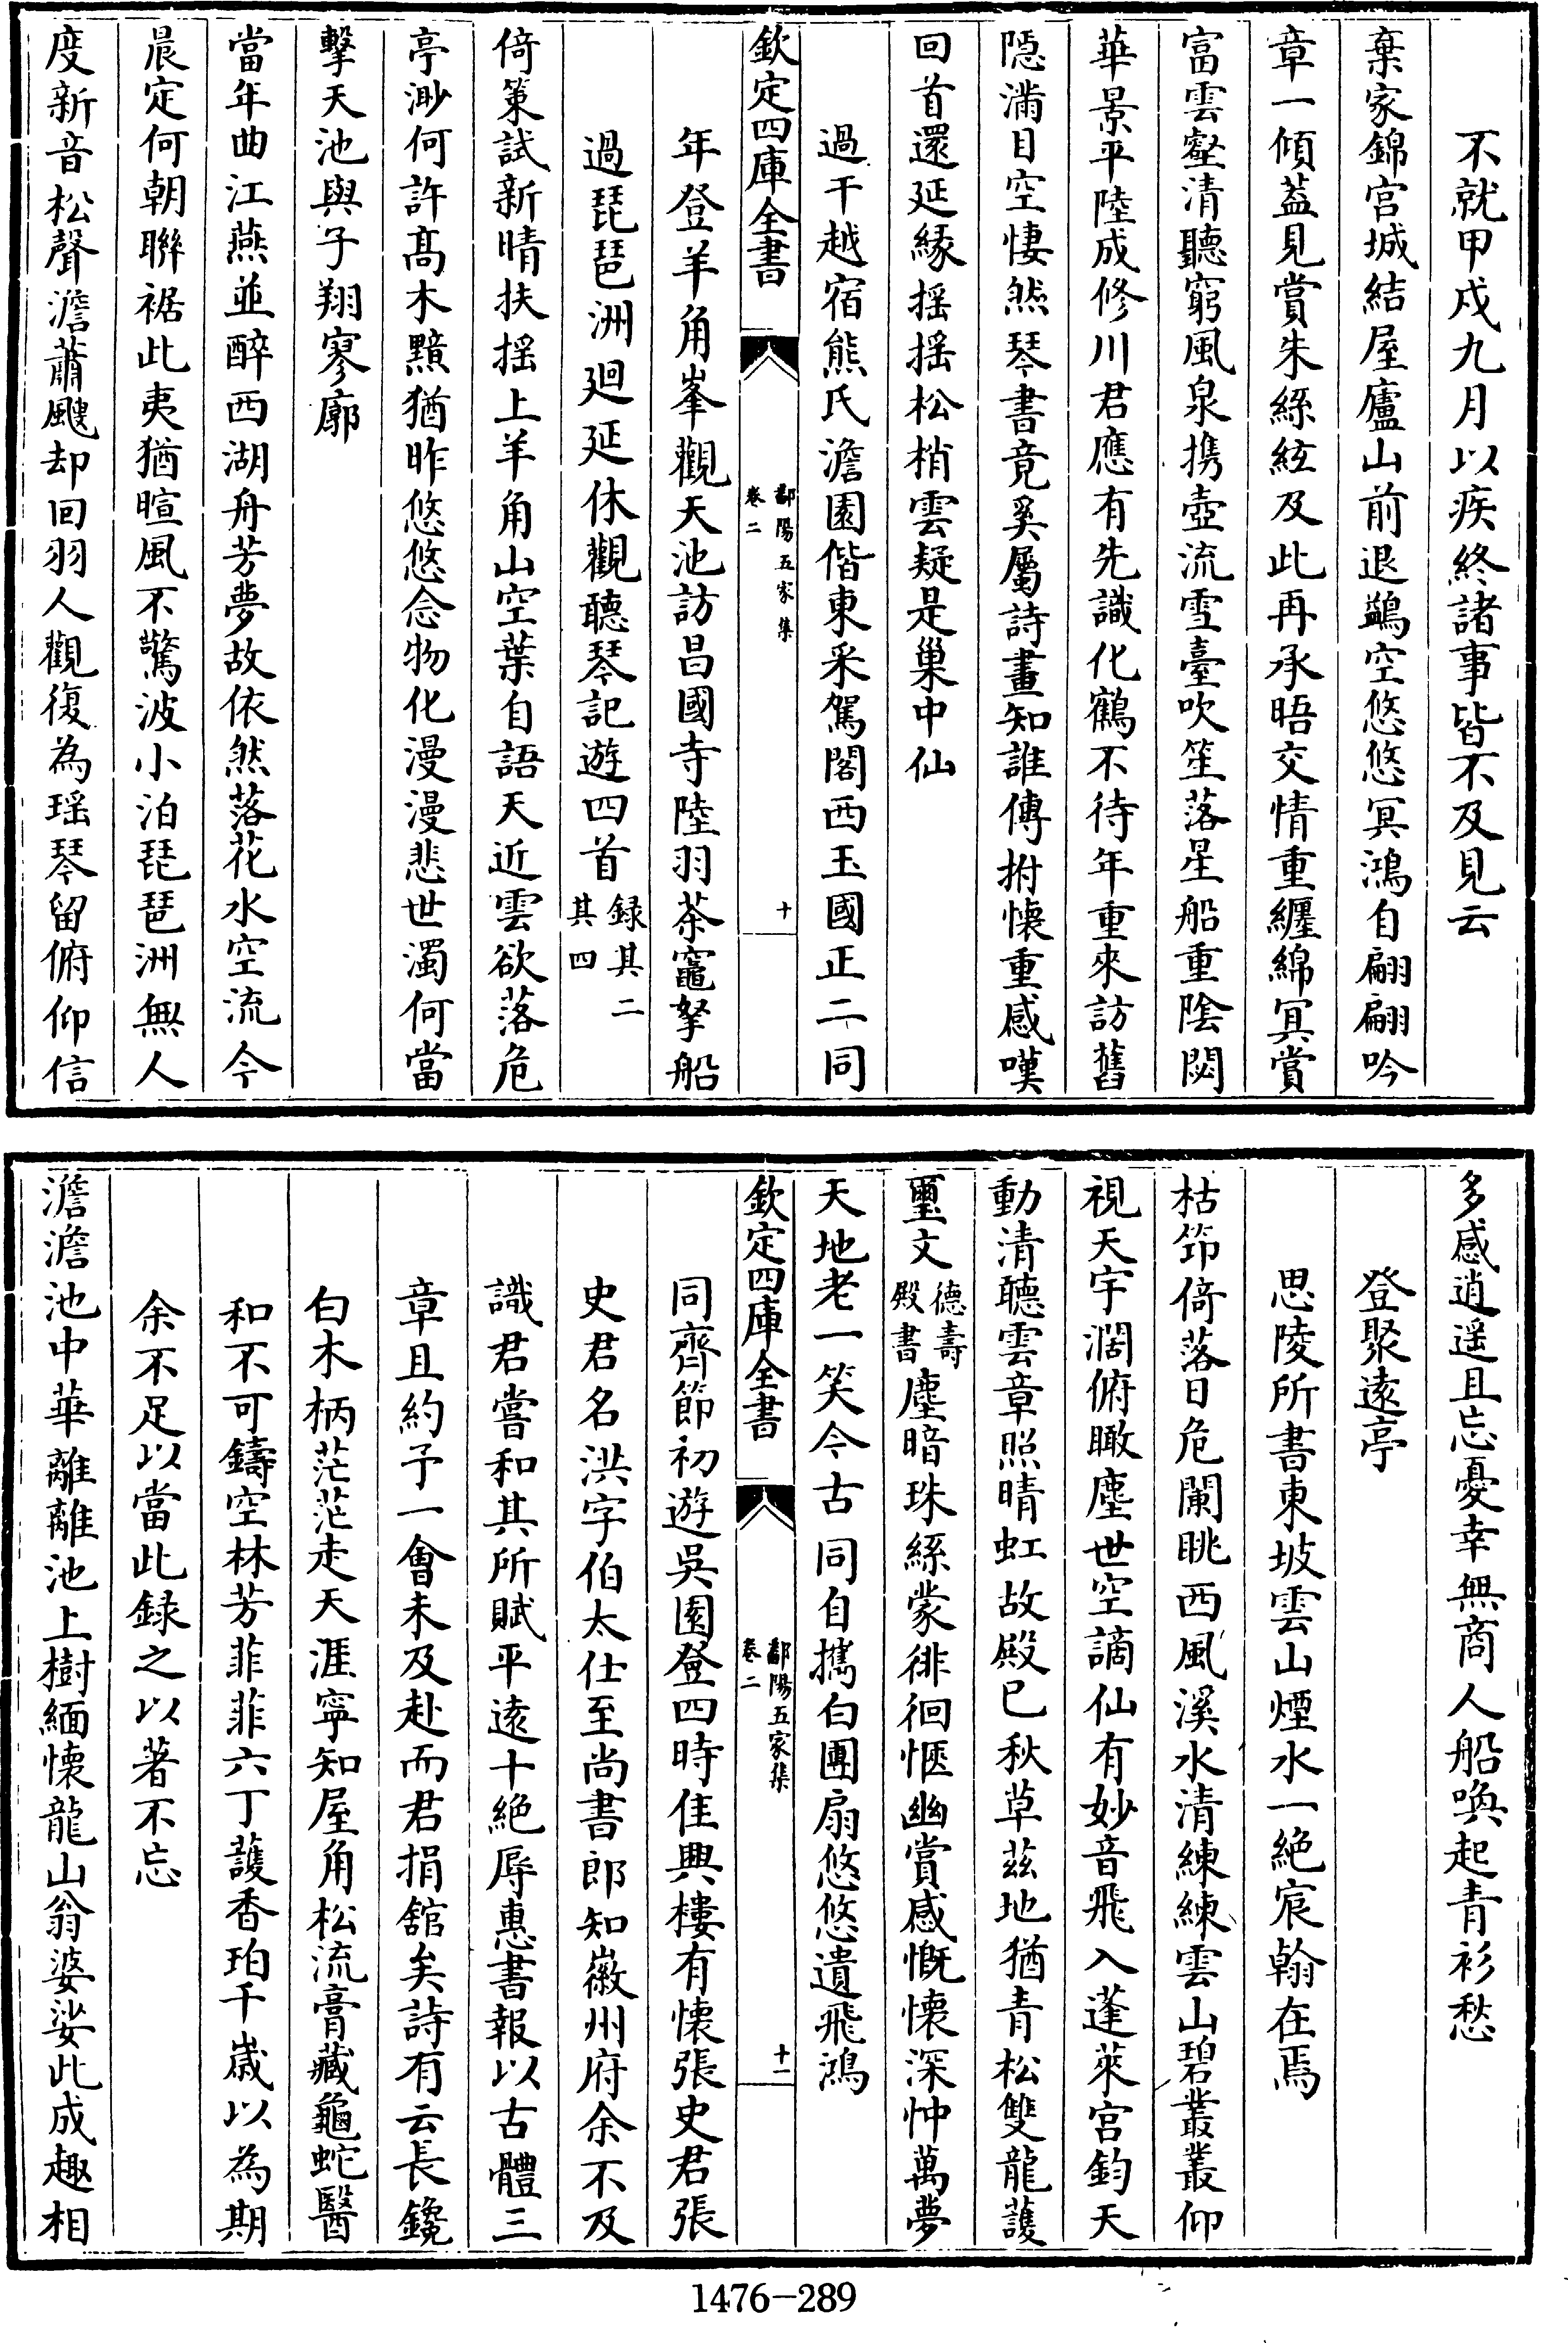 不就甲戍九月以疾終諸事皆不及見云
棄家錦宫城結屋廬山前退鷁空悠悠冥鴻自翩翩吟
章一傾蓋見賞朱絲絃及此再承晤交情重纒綿冥賞
富雲壑清聽窮風泉携壺流雪臺吹笙落星船重陰閟
華景平陸成修川君應有先識化鶴不待年重來訪舊
隠滿目空悽然琴書竟奚屬詩畫知誰傳拊懷重感嘆
回首還延緣揺揺松梢雲疑是巢中仙
過干越宿熊氏澹園偕東采駕閣西玉國正二同
欽定四庫全書
鄱陽五家集
卷二
十
年登羊角峯觀天池訪昌國寺陸羽茶竈拏船
過琵琶洲廻延休觀聽琴記遊四首
録其二
其四
倚策試新晴扶揺上羊角山空葉自語天近雲欲落危
亭渺何許髙木黯猶昨悠悠念物化漫漫悲世濁何當
擊天池與子翔寥廓
當年曲江燕並醉西湖舟芳夢故依然落花水空流今
晨定何朝聯裾此夷猶暄風不驚波小泊琵琶洲無人
度新音松聲澹蕭颼却回羽人觀復為瑶琴留俯仰信
多感逍遥且忘憂幸無商人船喚起青衫愁
登聚遠亭
思陵所書東坡雲山煙水一絶宸翰在焉
枯筇倚落日危闌眺西風溪水清練練雲山碧叢叢仰
視天宇濶俯瞰塵世空謫仙有妙音飛入蓬萊宫鈞天
動清聽雲章照晴虹故殿已秋草兹地猶青松雙龍護
璽文
德壽
殿書
塵暗珠絲蒙徘徊愜幽賞感慨懷深忡萬夢
天地老一笑今古同自攜白團扇悠悠遺飛鴻
欽定四庫全書
鄱陽五家集
卷二
十一
同齊節初遊吳園登四時佳興樓有懷張史君張
史君名洪字伯太仕至尚書郎知徽州府余不及
識君嘗和其所賦平遠十絶辱惠書報以古體三
章且約予一會未及赴而君捐舘矣詩有云長鑱
白木柄茫茫走天涯寜知屋角松流膏藏龜蛇醫
和不可鑄空林芳菲菲六丁護香珀千嵗以為期
余不足以當此録之以著不忘
澹澹池中華離離池上樹緬懷龍山翁婆娑此成趣相
1476-289